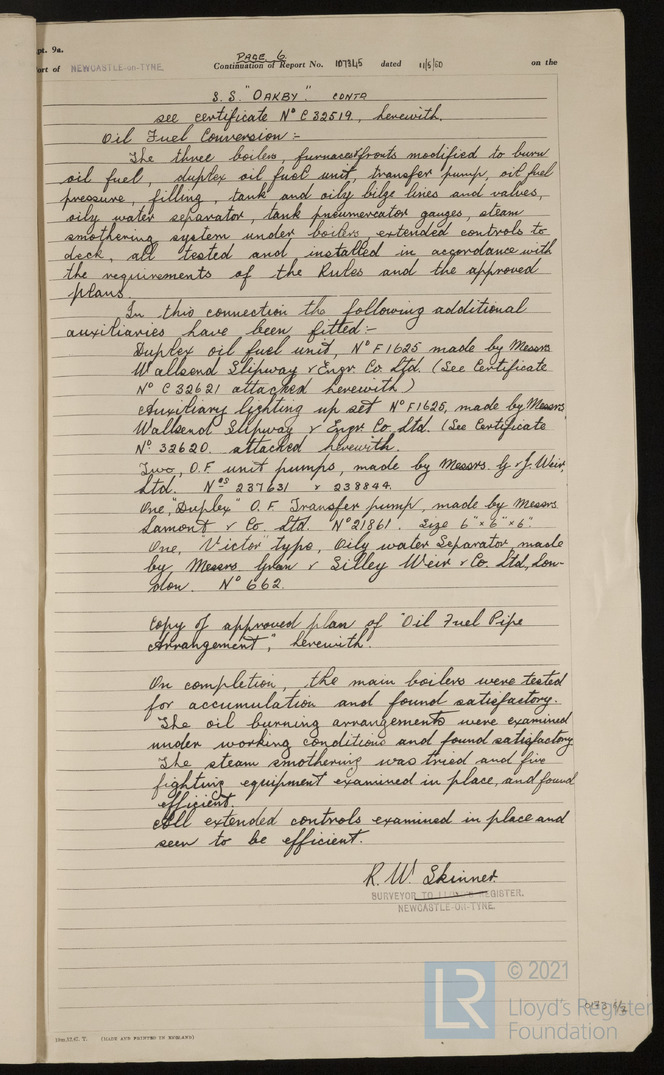 pt. 9a.
PAGE 6
ort of NEWCASTLE-on-TYNE. Continuation of Report No. 107345 dated 11/5/50 on the
S.S. "OAKBY." CONTD
see certificate No C 32519, herewith.
Oil Fuel Conversion :-
The three boilers, furnaces & fronts modified to burn
oil fuel, duplex oil fuel unit, transfer pump, oil fuel
pressure, filling, tank and oily bilge lines and valves,
oily water separator, tank pneumercator gauges, steam
smothering system under boilers, extended controls to
deck, all tested and installed in accordance with
the requirements of the Rules and the approved
plans.
In this connection the following additional
auxiliaries have been fitted :-
Duplex oil fuel unit, No F1625 made by Messrs
Wallsend Slipway & Engr Co. Ltd. (See Certificate
No C 32621 attached herewith)
Auxiliary lighting up set No F1625, made by Messrs
Wallsend Slipway & Engr Co. Ltd. (See Certificate
No. 32620. attached herewith.
Two, O.F. unit pumps, made by Messrs. G & J. Weir,
Ltd. Nos 237631 & 238844.
One, "Duplex" O.F. Transfer pump, made by Messrs
Lamont & Co. Ltd. No 21861. Size 6" x 6" x 6".
One, "Victor" type, Oily water Separator, made
by Messrs. & Silley Weir & Co. Ltd, Lon-
don. No 662.
Copy of approved plan of "Oil Fuel Pipe
Arrangement", herewith.
On completion, the main boilers were tested
for accumulation and found satisfactory.
The oil burning arrangements were examined
under working conditions and found satisfactory
The steam smothering was tried and fire
fighting equipment examined in place, and found
efficient.
All extended controls examined in place and
seen to be efficient.
R. W. Skinner.
SURVEYOR TO LLOYD'S REGISTER.
NEWCASTLE-ON-TYNE.
LR © 2021
Lloyd's Register
Foundation
0173 1/2
(MADE AND PRINTED IN ENGLAND)